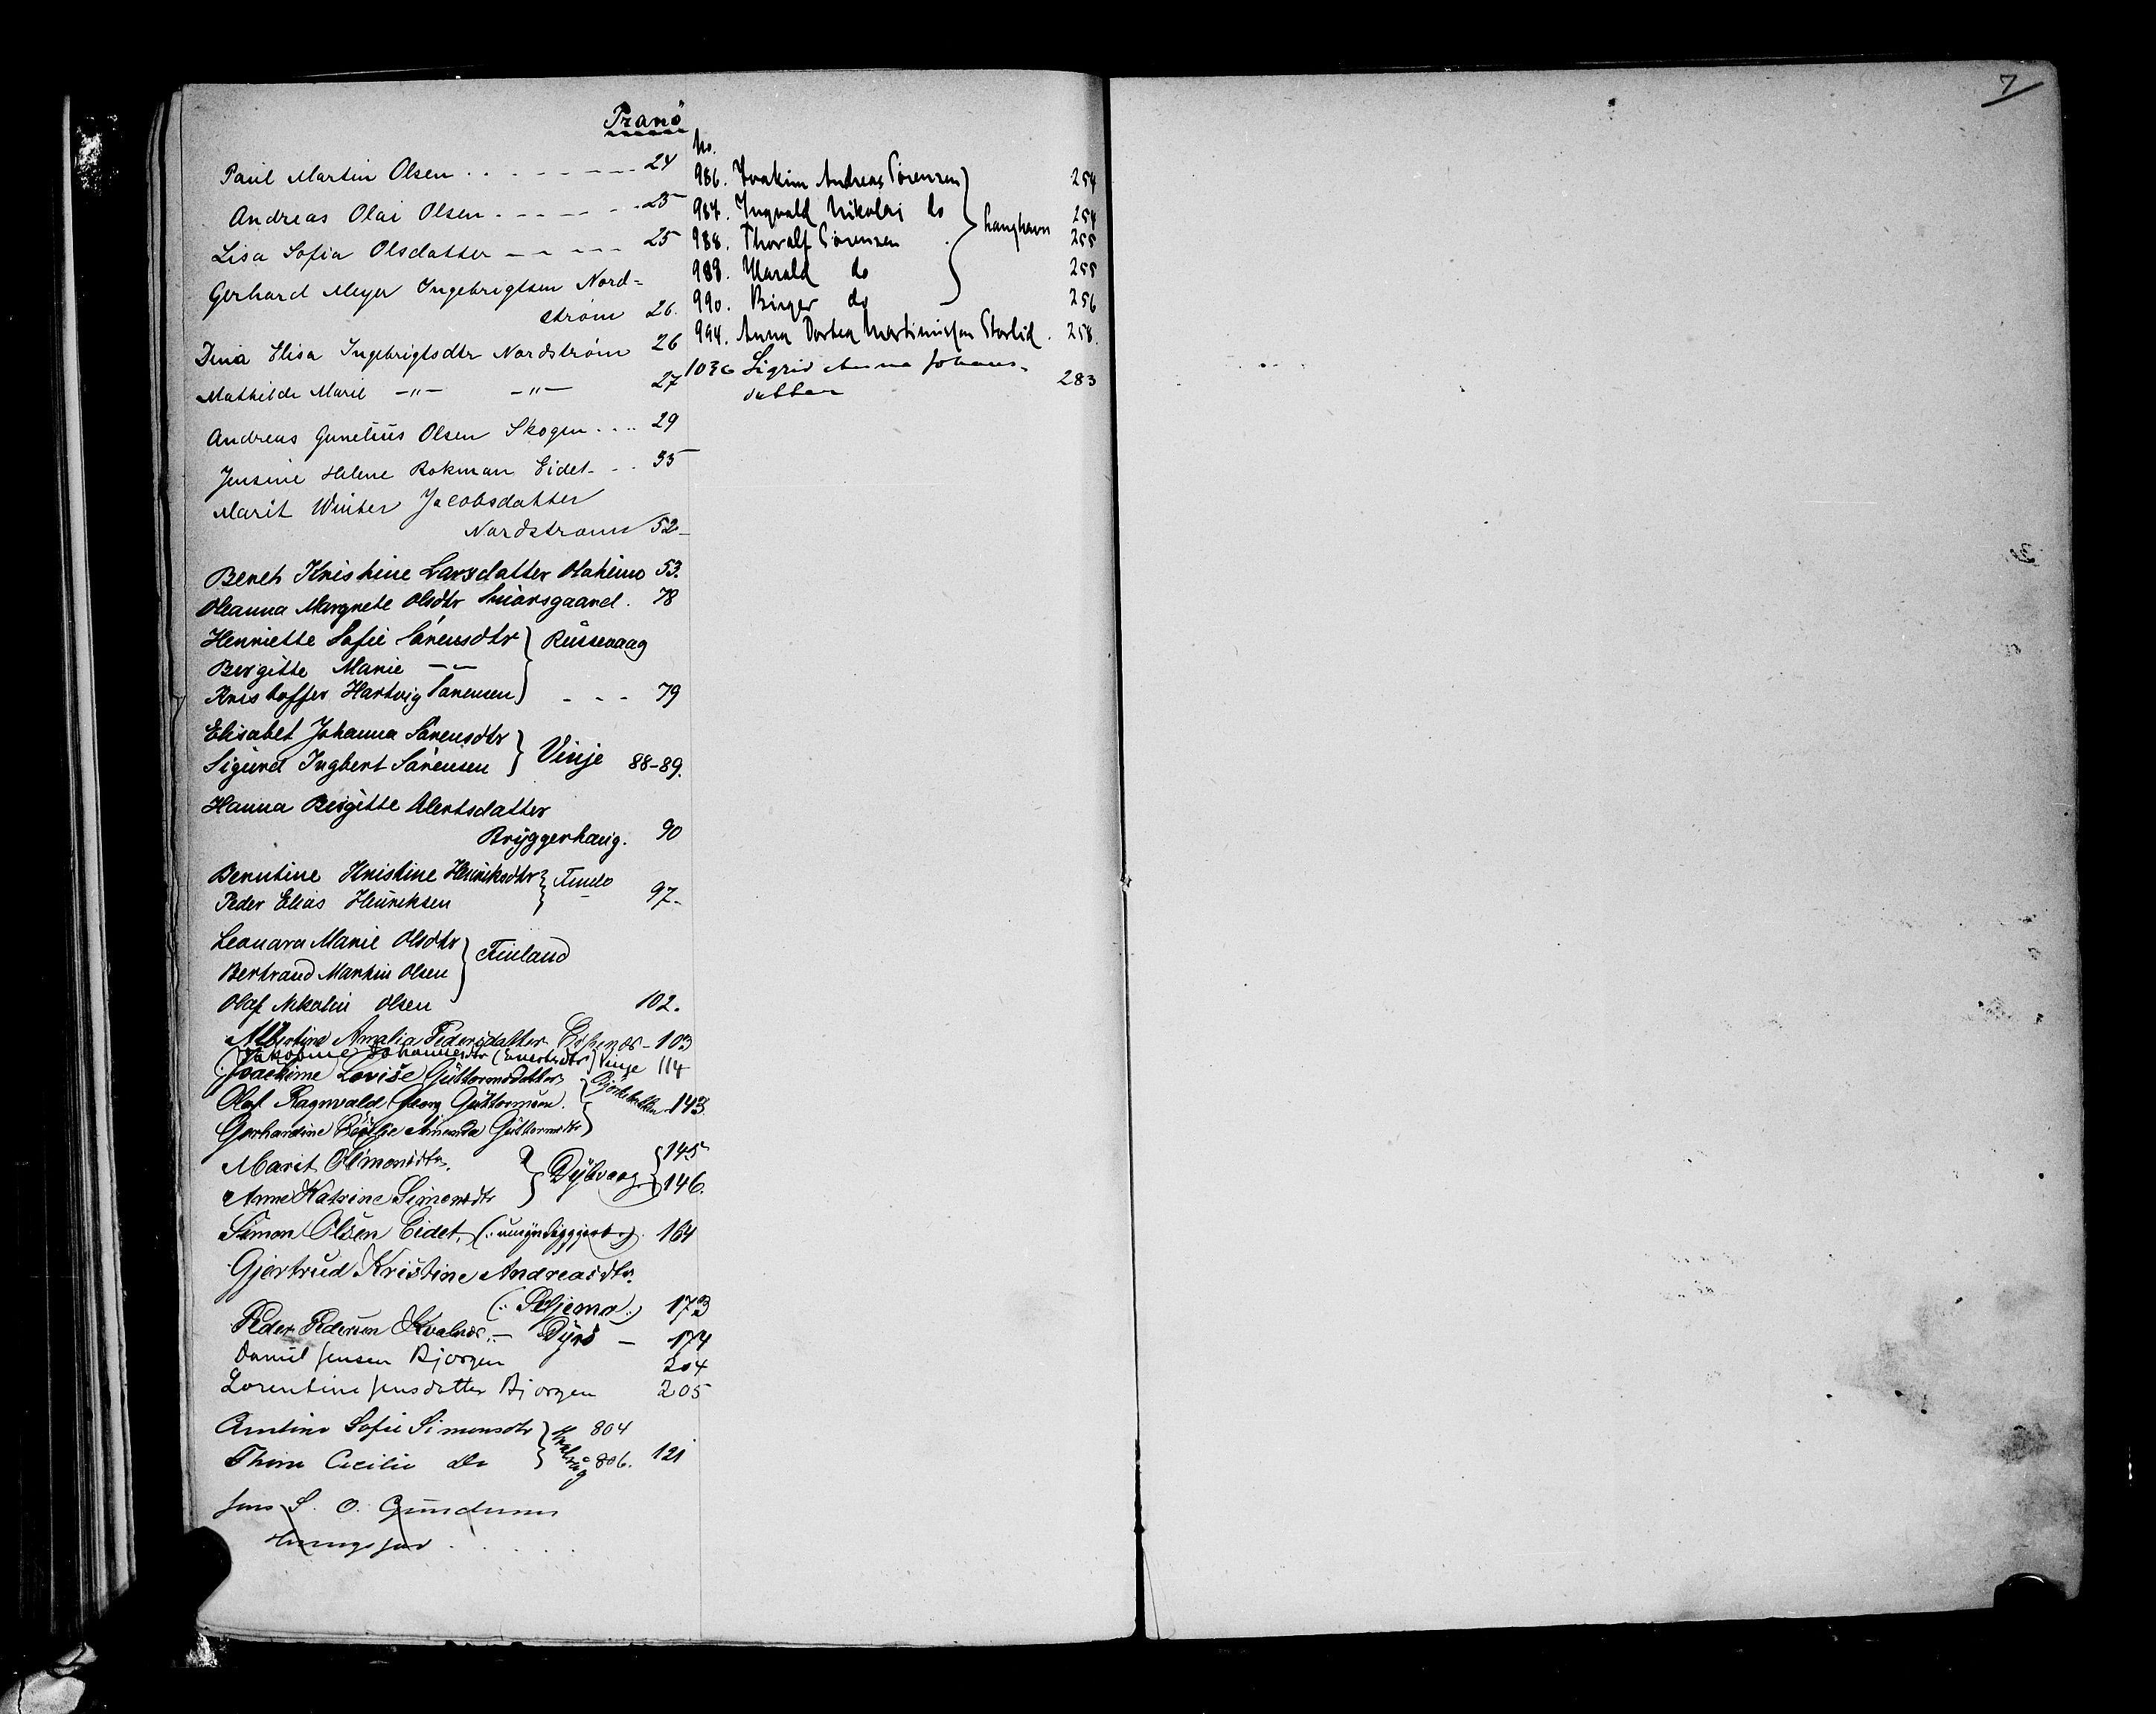 7
Tranö
Paul Martin Olsen . . . . . . . . 24
Andreas Olai Olsen . . . . . . 25
Lisa Sofia Olsdatter . . . . 25
Gerhard Meyer Ingebrigtsen Nord-
strøm 26.
Dina Elisa Ingebrigtsdtr Nordstrøm 26
Mathilde Marie —"— —"— 27
Andreas Gunelius Olsen Skogen . . . . 29
Jensine Helene Rokman Eidet . . 35
Marit Winter Jacobsdatter
Nordstrøm 52
Beret Kristine Larsdatter 53.
Oleanna Margrete Olsdtr 78
Henriette Sofie Sørensdtr } Russevaag
Bergitte Marie — —
Kristoffer Hartvig Sørensen } . . . 79
Elisabet Johanna Sörensdtr
Sigurd Ingbert Sörensen } Vinje 88-89.
Hanna Bergitte
Bryggerhaug. 90
Berntine Kristine Henriksdtr }
Peder Elias Henriksen 97.
Leonara Marie Olsdtr
Bertrand Martin Olsen } Finland
Olaf Nikolai Olsen 102.
Albertine Amalia Pedersdatter 103
Jakobine Johannesdtr (Evertsdtr) Vinje 114
Joachime Lovise Guttormsdatter
Olaf Ragnvald Georg Guttormsen. 143.
Gerhardine Amanda Guttormsdtr
Marit Simonsdtr. } 145
Anne Katrine Simonsdtr } Dybvaag } 146.
Simon Olsen Eidet, (: umyndiggjort :) 164
Gjertrud Kristine Andreasdtr.
173
Peder Pedersen Kvalnes. — Dyrö — 174
Daniel Jensen Bjorgen 204
Lorentine Jensdatter Bjorgen 205
Sofie Simonsdtr } 804
Cecilie Do } 806. 121
Jens S. O.
No.
986. Joakim Andreas Sörensen } 254
987. Ingvald Nikolai do } Langhavn 254
988. Thoralf Sörensen 255
989. Harald do 255
990. Birger do 256
994. Anna Dortea Martinussen Storlid. 258.
1036 Sigrid Anna Johans-
datter 283